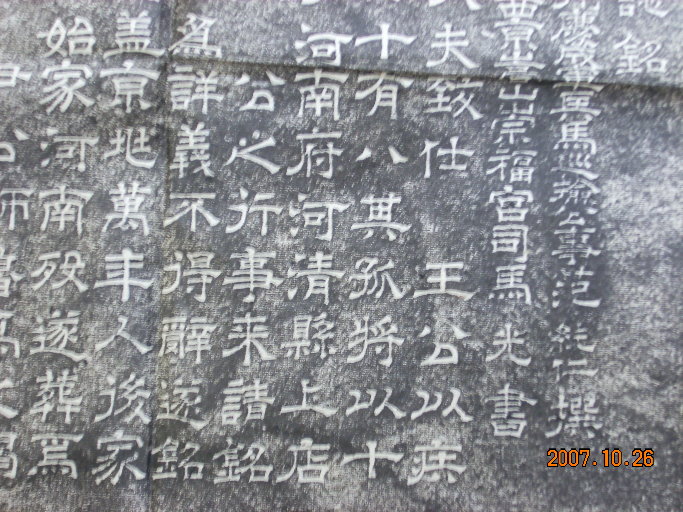 誌銘
慶馬巡事范純仁撰
宗福宮司馬光書
夫致仕王公以疾
十有八其孤將以十
河南府河清縣上店
公之行事来請銘
為詳義不得辭遂銘
盖京兆萬年人後家
始家河南歿遂葬焉
尹公師魯
2007.10.26